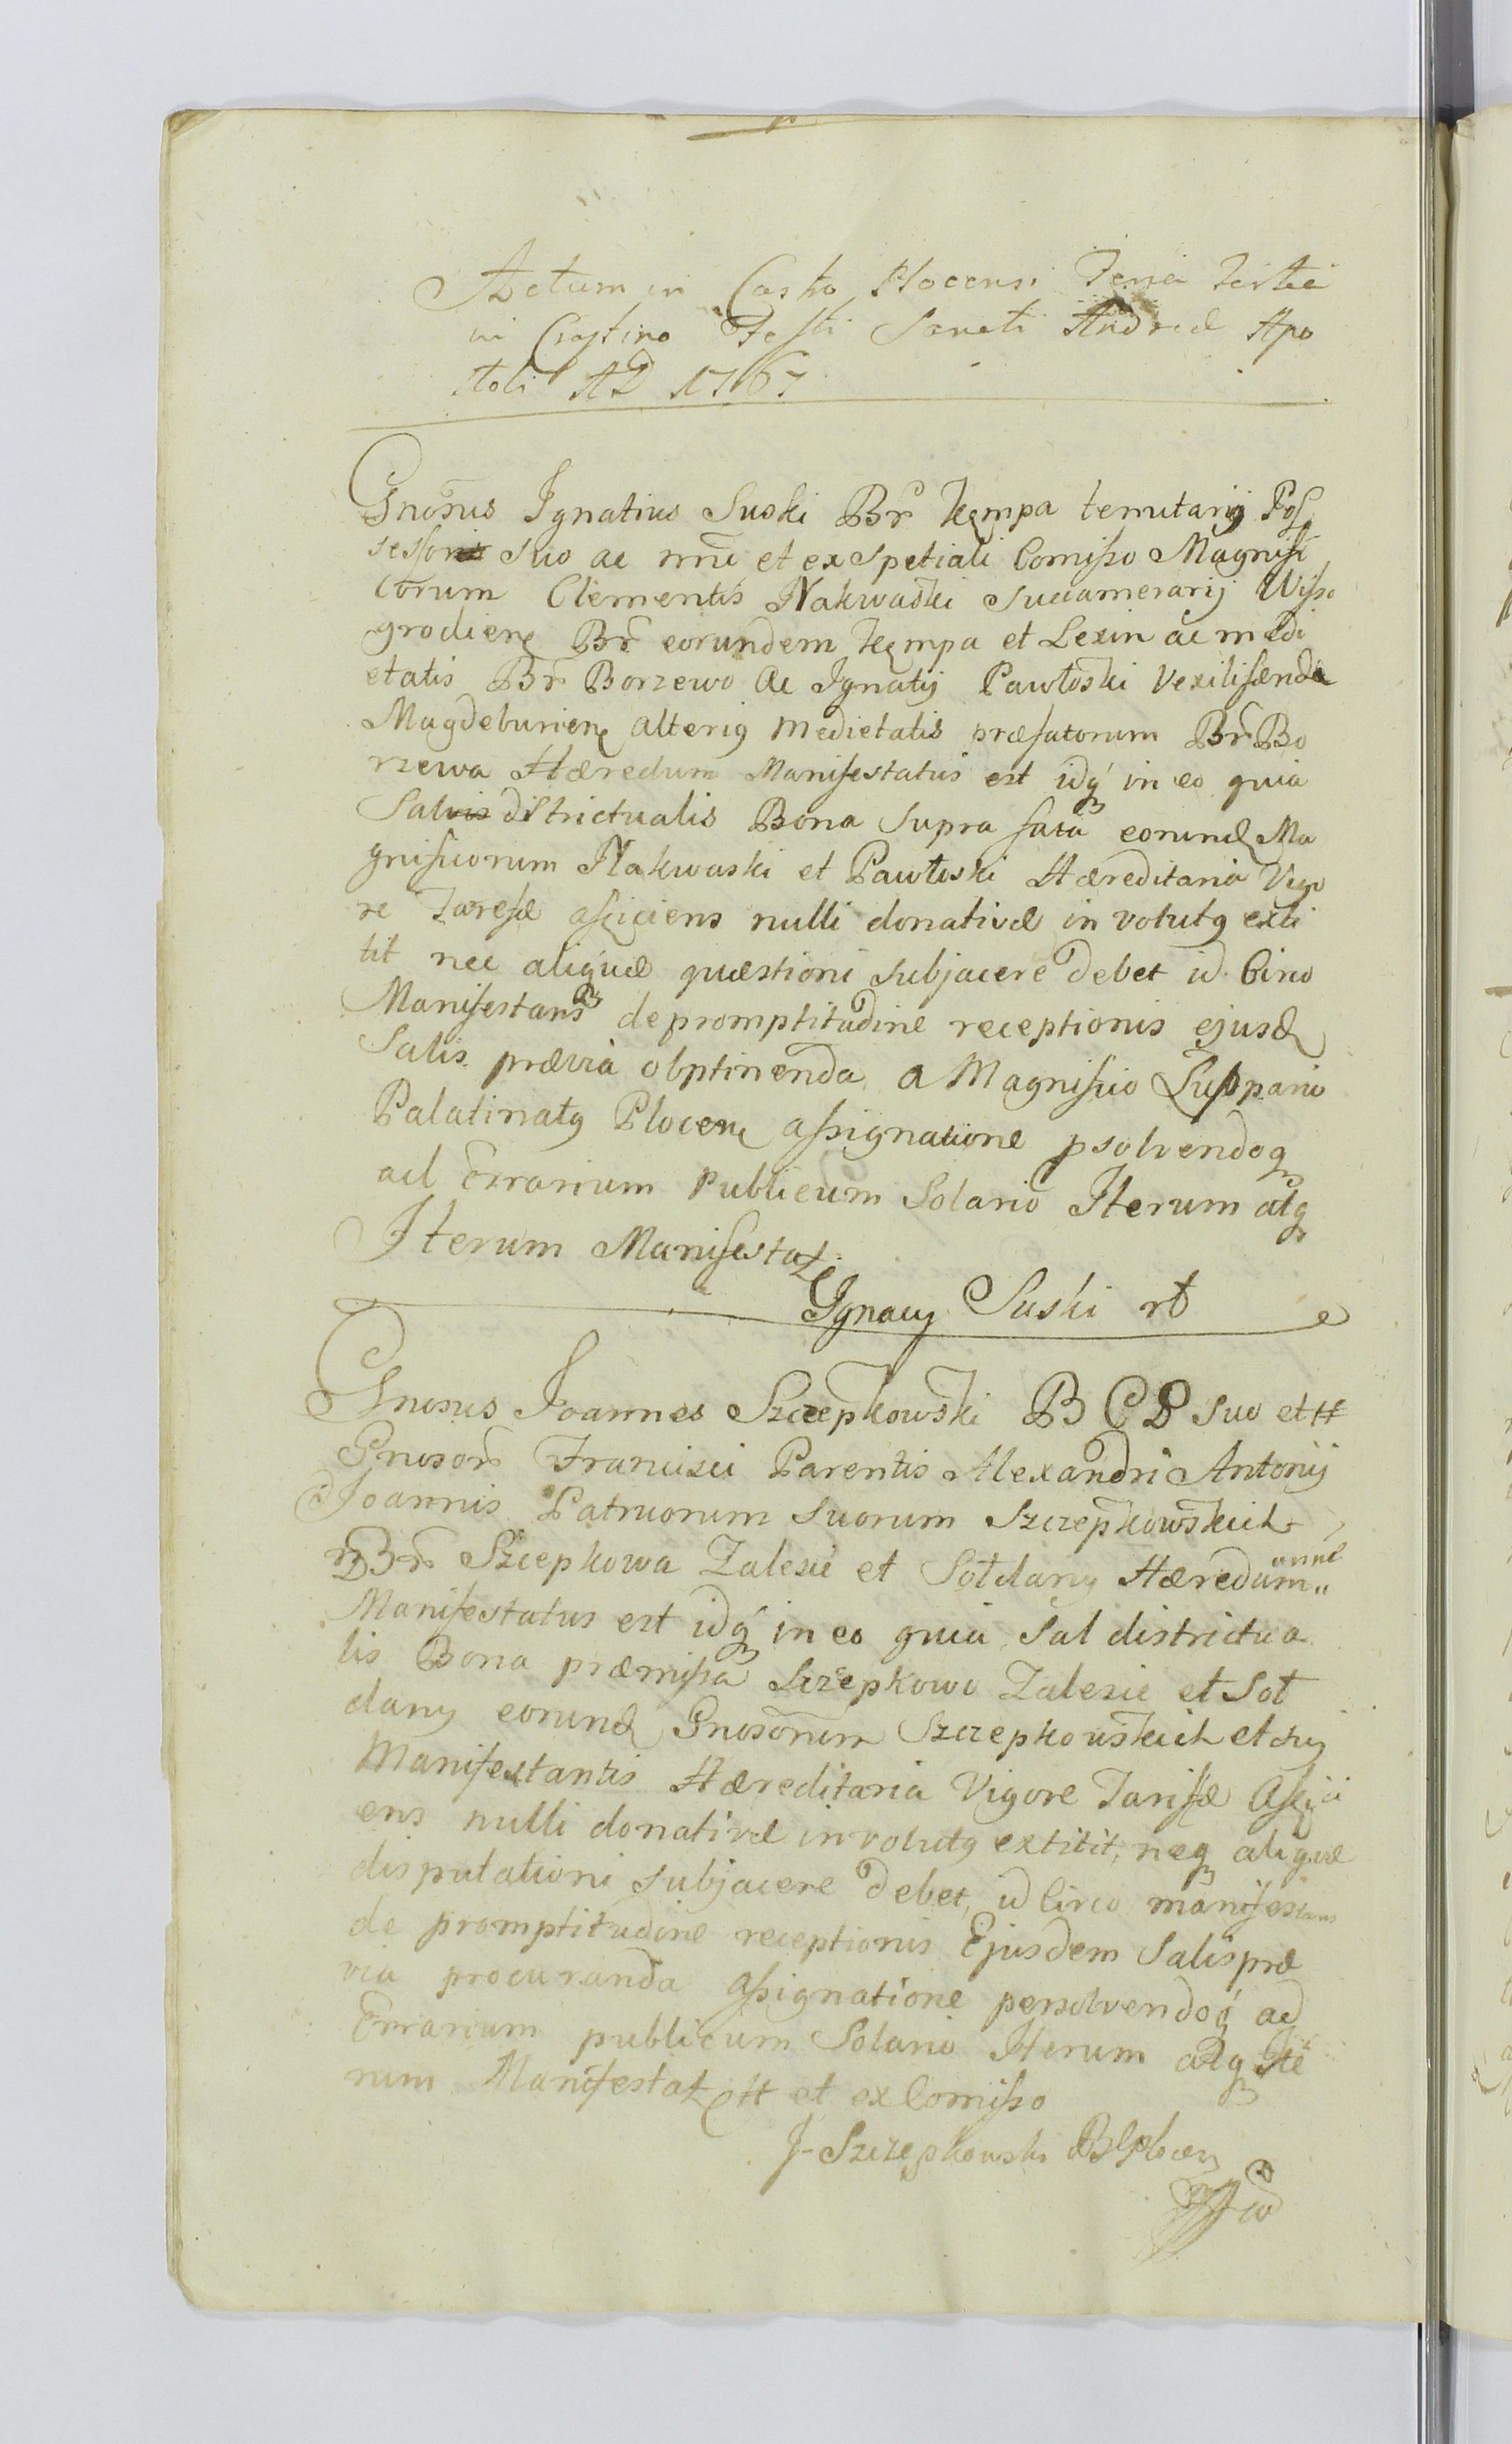 Actum in Castro Plocensi Feria Tertia
in Crastino Festi Sancti Andreæ Apo
stoli AD 1767
Gnosus Ignatius Suski Br̃ Kępma tenutariȷ Pos
sessor suo ac nñe et ex Spetiali Comisso Magnifi
corum Clementis Nakwaski Succamerarij Wiſso
grodien̄ Br̃ eorundem Kępma et Lexin ac medi
etatis Br̃ Borzewo Ac Ignatij Pawłoski Vexiliferide
Magdeburien̄ alterig medietatis præfatorum Br̃ Bo
rzewa Hæredum Manifestatus est idq́ in eo quia
Sal districtualis Bona Supra fata eorund Ma
gnificorum Nakwaski et Pawłoski Hæreditaria Vigo
re Tarefæ afficiens nulli donativæ involutg exti
tit nec aliquæ quæstioni subjacere debet id Circo
Manifestans de promptitudine receptionis ejusd
Salis prævia obptinenda a Magnifico Suppario
Palatinatg Plocen̄ aſsignatione psolvendoq
ad Errarium Publicum Solario Iterum atq
Iterum Manifestat.
Ignacy Suski
Gnosus Joannes Szczepkowski B C P suo et
Gnosor̃ Francisci Parentis Alexandri Antonij
Joannis Patruorum Suorum Szczepkowskich
Br̃ Szczepkowa Zalesie et Sołdany Hæredum
Manifestatus est idq́ in eo quia Sal districtua
lis Bona præmiſsa Szczepkowo Zalesie et Soł
dany eorund Gnosorum Szczepkowskich et sui
Manifestantis Hæreditaria Vigore Tarifæ Affici
ens nulli donativæ involutg extitit, neq aliquæ
disputationi subjacere debet, id Circo manifestans
de promptitudine receptionis Ejusdem Salis præ
via procuranda aſsignatione persolvendoq́ ad
Errarium publicum Solario Iterum atq Ite
rum Manifestat et ex Comiſso
J Szczepkowski